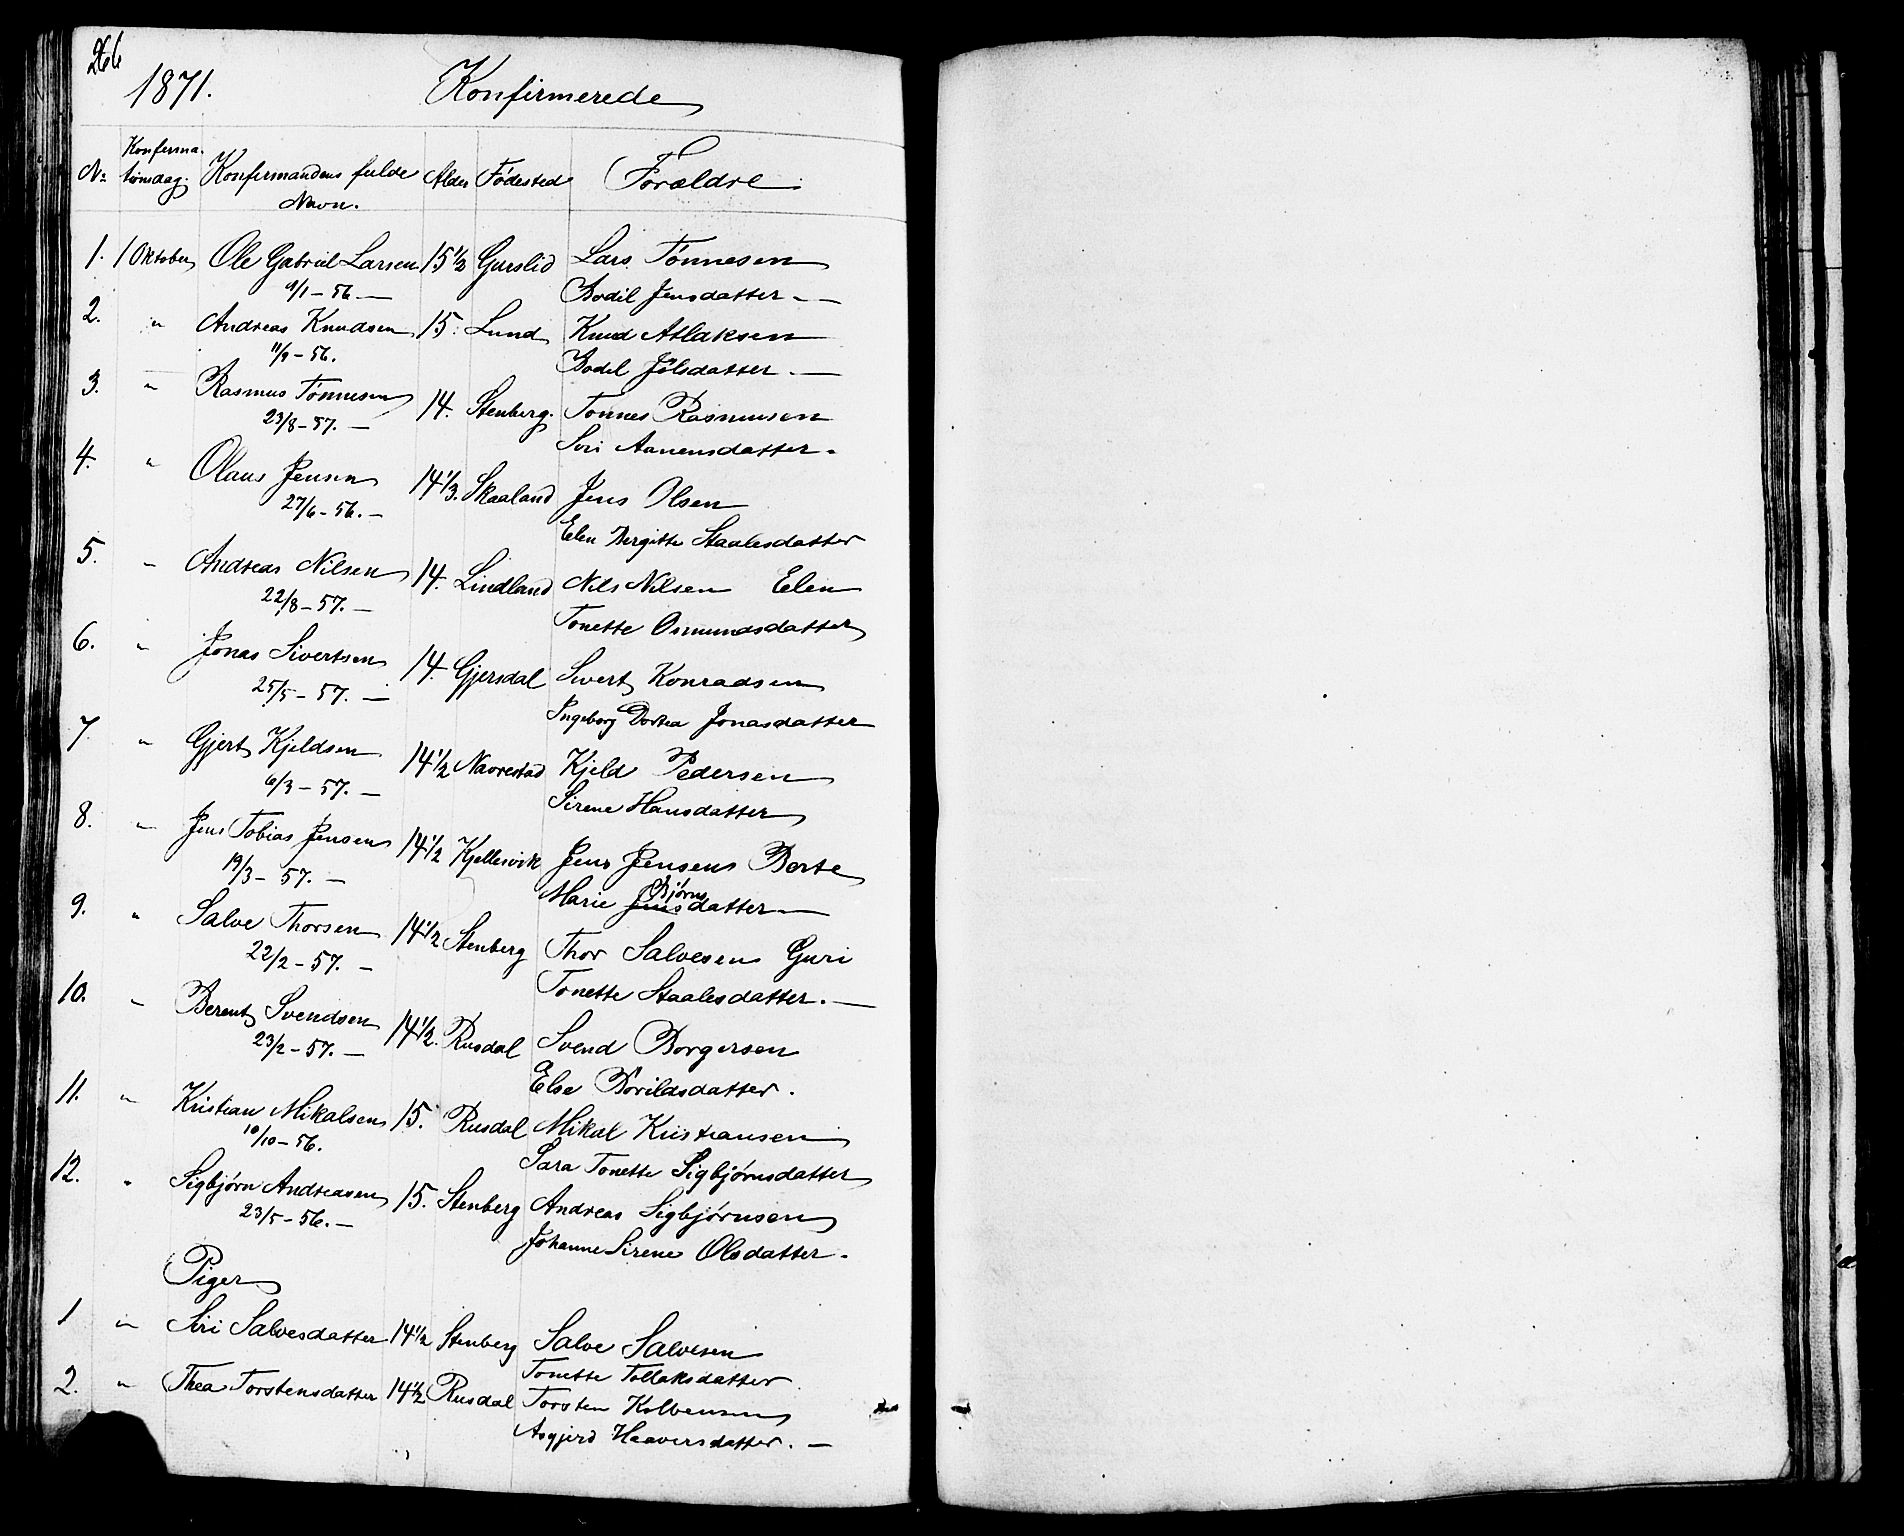 266
1871. Konfirmerede
No Konfirma-tionsdag. Konfirmandens fulde Navn. Alder Fødested Forældre
1. 1 Oktober Ole Gabriel Larsen 15 1/2 Gurslid Lars Tønnesen
9/1 - 56 — Bodil Jensdatter. —
2. " Andreas Knudsen 15. Lund Knud Atlaksen
11/9 - 56. Bodil Jølsdatter. —
3. " Rasmus Tønnesen 14. Stenberg. Tønnes Rasmussen
23/8 - 57. — Siri Aanensdatter.
4. " Olaus Jensen 14 1/3. Skaaland Jens Olsen
27/6 - 56. — Elen Bergitte Staalesdatter
5. " Andreas Nilsen 14. Lindland Nils Nilsen Elen
22/8 - 57. — Tonette Osmundsdatter
6. " Jonas Sivertsen 14. Gjersdal Sivert Konradsen
25/5 - 57. — Ingeborg Dortea Jonasdatter
7. " Gjert Kjeldsen 14 1/2 Navrestad Kjeld Pedersen
6/3 - 57. — Sirene Hansdatter
8. " Jens Tobias Jensen 14 1/2 Kjellesvik Jens Jensens Berte
19/3 - 57. — Marie Jens Bjørnsdatter —
9. " Salve Thorsen 14 1/2 Stenberg Thor Salvesen Guri
22/2 - 57. — Tonette Staalesdatter. —
10. " Berent Svendsen 14 1/2. Rusdal Svend Borgersen
23/2 - 57. — Else Torildsdatter.
11. " Kristian Mikalsen 15. Rusdal Mikal Kristiansen
10/10 - 56. Sara Tonette Sigbjørnsdatter
12. " Sigbjørn Andreasen 15. Stenberg Andreas Sigbjørnsen
23/5 - 56. — Johanne Sirene Olsdatter.
Piger
1 " Siri Salvesdatter 14 1/2 Stenberg Salve Salvesen
Tonette Tollaksdatter
2. " Thea Torstensdatter 14 1/2 Rusdal Torsten Kolbensen
Asgjerd Haaversdatter. —